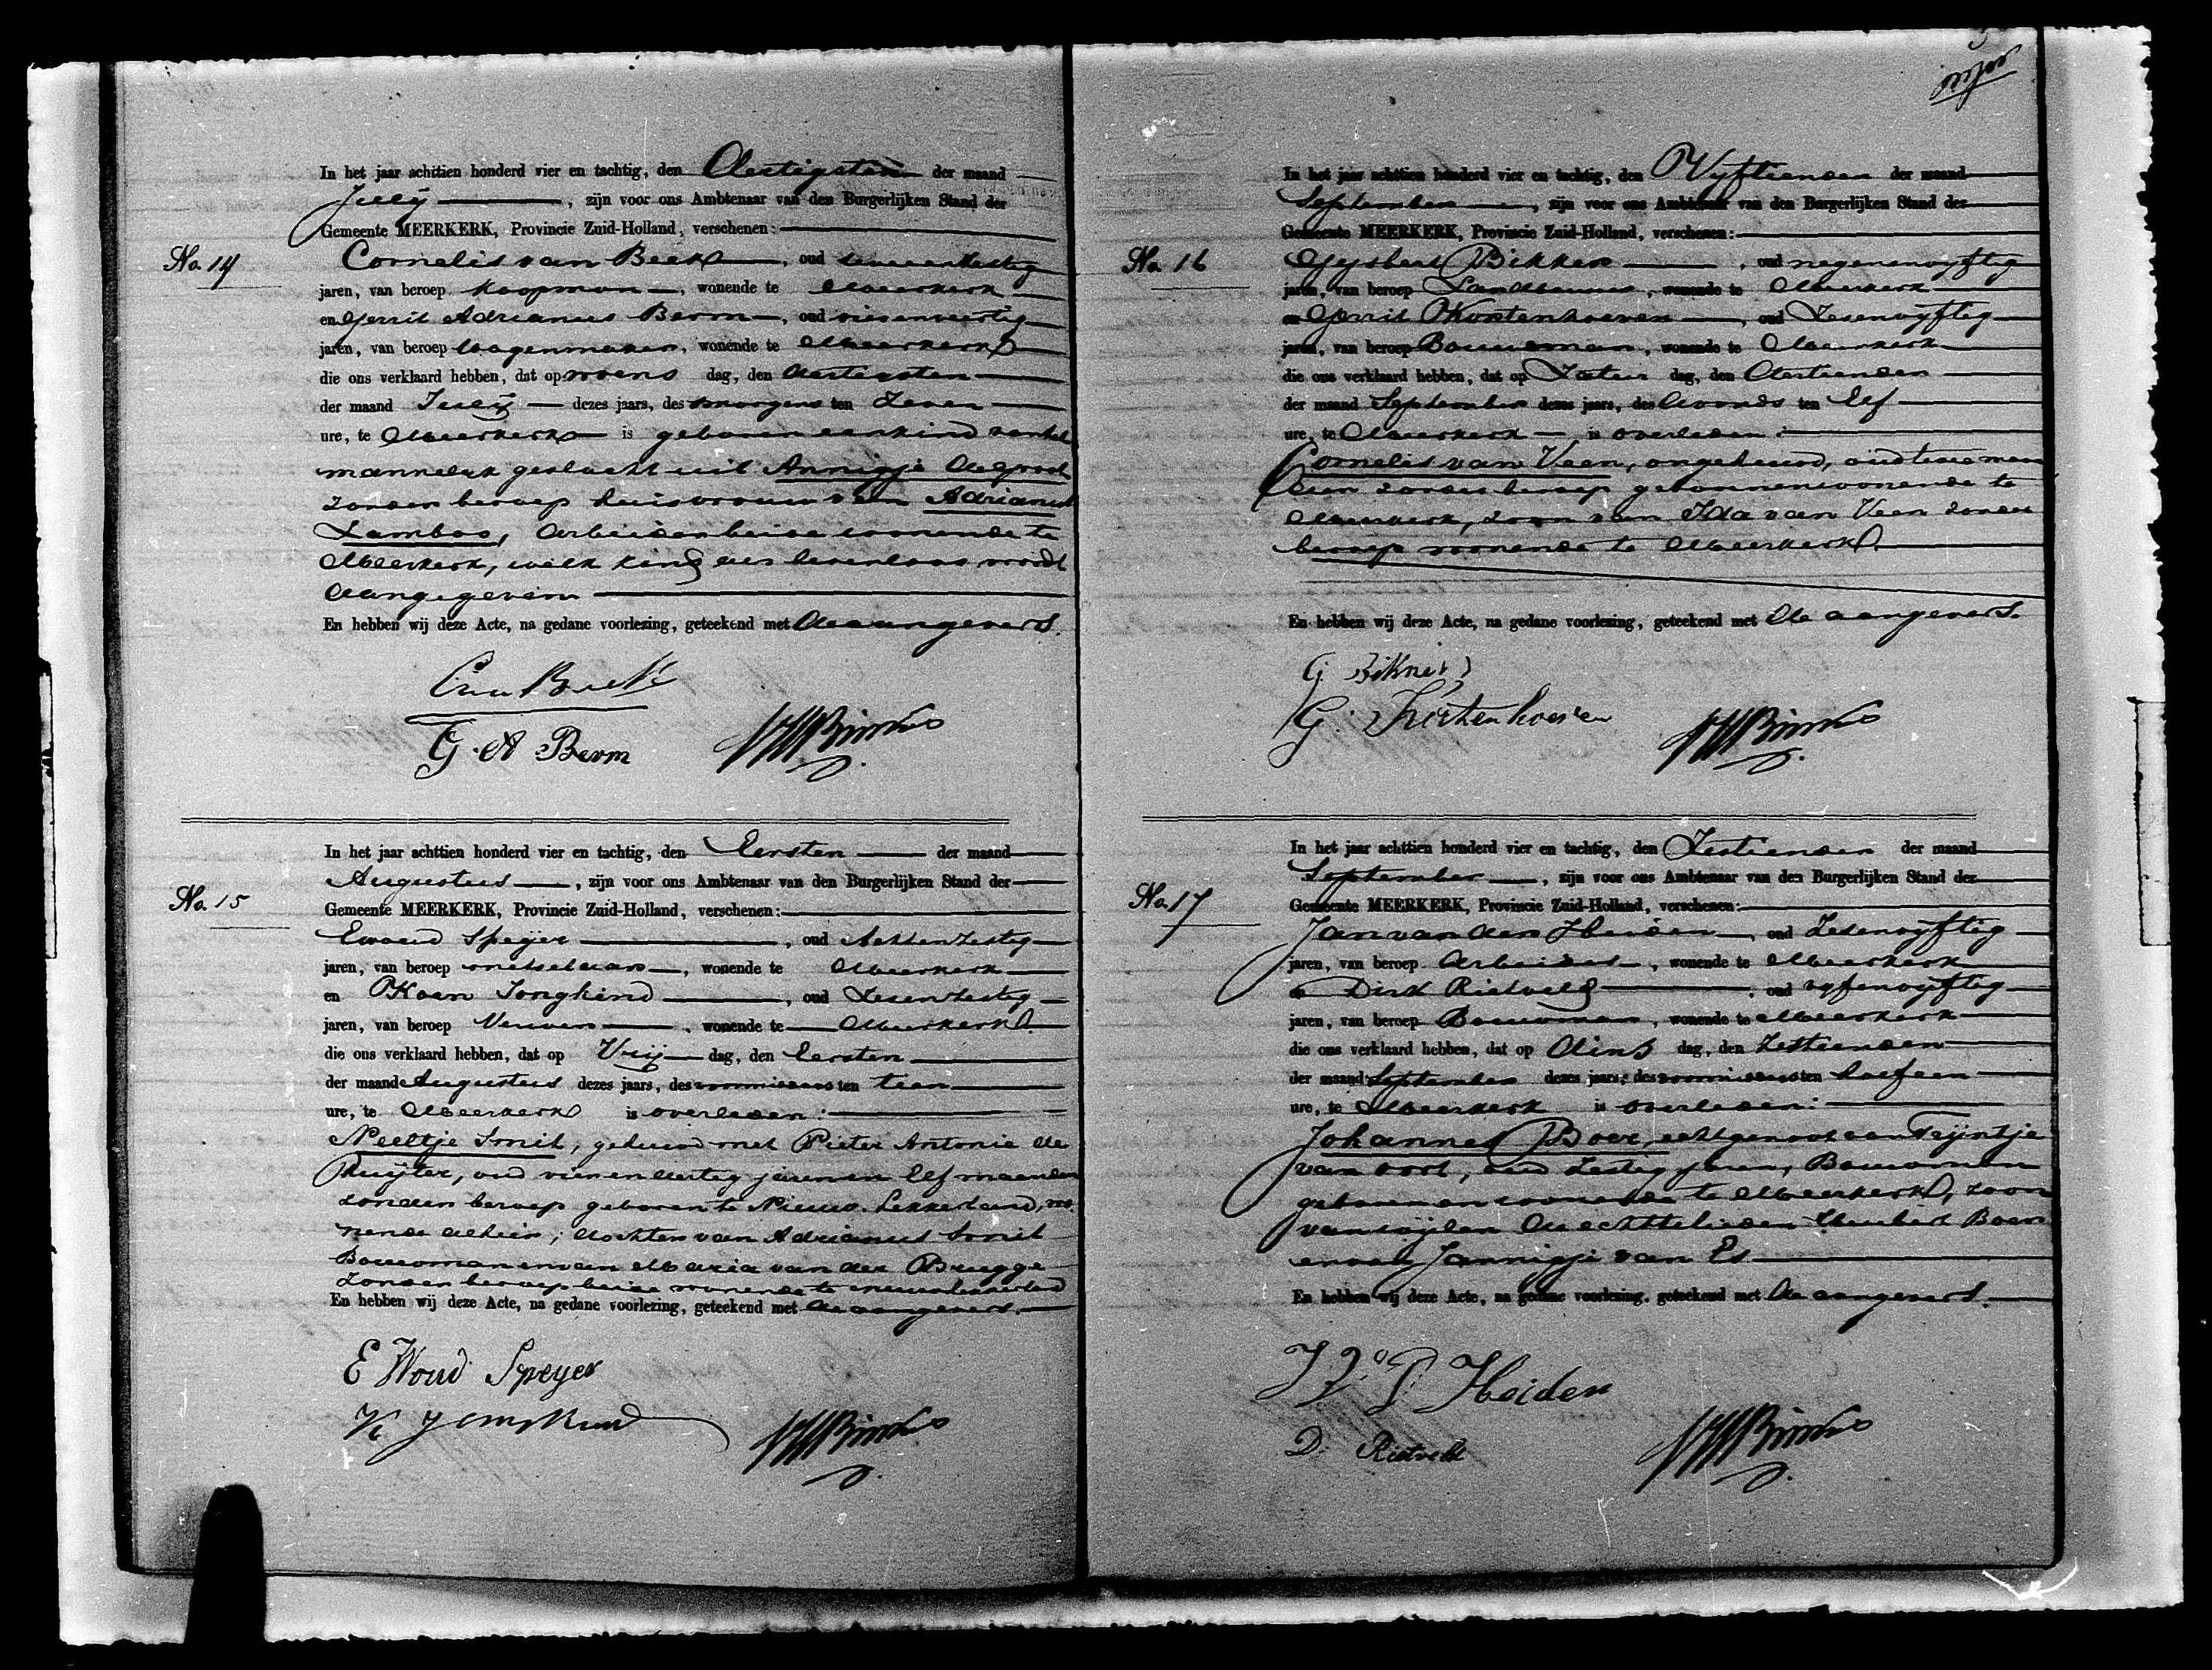 In het jaar achttien honderd vier en tachtig, den Dertigsten der maand
July, zijn voor ons Ambtenaar van den Burgerlijken Stand der
Gemeente MEERKERK, Provincie Zuid-Holland, verschenen:
No. 14
Cornelis van Beek, oud
jaren, van beroep koopman, wonende te Meerkerk
en Gerrit Adrianus Berm, oud
jaren, van beroep Wagenmaker, wonende te Meerkerk
die ons verklaard hebben, dat op woens dag, den dertigsten
der maand July dezes jaars, des morgens ten zeven
ure, te Meerkerk is geboren een kind van het
mannelijk geslacht uit Annigje de Groot
zonder beroep huisvrouw van Adrianus
Lambos, Arbeider beide wonende te
Meerkerk, welk kind als levenloos wordt
aangegeven
En hebben wij deze Acte, na gedane voorlezing, geteekend met de aangevers.
C van Beek
G. A Berm
In het jaar achttien honderd vier en tachtig, den Eersten der maand
Augustus, zijn voor ons Ambtenaar van den Burgerlijken Stand der
No. 15
Gemeente MEERKERK, Provincie Zuid-Holland, verschenen:
Ewoud Speyer, oud Achtenzestig
jaren, van beroep metselaar, wonende te Meerkerk
en Koen Jongkind, oud Zesenzestig
jaren, van beroep Verwer, wonende te Meerkerk
die ons verklaard hebben, dat op Vrij dag, den Eersten
der maand Augustus dezes jaars, des voormiddags ten tien
ure, te Meerkerk is overleden:
Neeltje Smit, gehuwd met Pieter Antonie de
Ruijter, oud vierendertig jaren en Elf maanden
zonder beroep geboren te Nieuw-Lekkerland, wo
nende alhier; dochter van Adrianus Smit
Bouwman en van Maria van der Brugge
zonder beroep beide wonende te Nieuwlekkerland
En hebben wij deze Acte, na gedane voorlezing, geteekend met de aangevers.
E Woud Speyer
K Jongkind
In het jaar achttien honderd vier en tachtig, den Vyftienden der maand
September, zijn voor ons Ambtenaar van den Burgerlijken Stand der
Gemeente MEERKERK, Provincie Zuid-Holland, verschenen:
No. 16
Gysbert Bikker, oud negenenvyftig
jaren, van beroep Landbouwer, wonende te Meerkerk
en Gerrit Kortenhoeven, oud Zesenvyftig
jaren, van beroep Bouwman, wonende te Meerkerk
die ons verklaard hebben, dat op Zatur dag, den Dertienden
der maand September dezes jaars, des Avonds ten Elf
ure, te Meerkerk is overleden:
Cornelis van Veen, ongehuwd, oud twee maan
den zonder beroep geboren en wonende te
Meerkerk, zoon van Ida van Veen zonder
beroep wonende te Meerkerk.
En hebben wij deze Acte, na gedane voorlezing, geteekend met de aangevers.
G. Bikker
G. Kortenhoeven
In het jaar achttien honderd vier en tachtig, den Zestienden der maand
September, zijn voor ons Ambtenaar van den Burgerlijken Stand der
No. 17
Gemeente MEERKERK, Provincie Zuid-Holland, verschenen:
Jan van der Heiden, oud Zesenvyftig
jaren, van beroep Arbeider, wonende te Meerkerk
en Dirk Rietveld, oud vyfenvyftig
jaren, van beroep Bouwman, wonende te Meerkerk
die ons verklaard hebben, dat op dins dag, den Zestienden
der maand September dezes jaars, des voormiddags ten half een
ure, te Meerkerk is overleden:
Johannes Boer, echtgenoot van Teyntje
van Oort, oud Zestig jaren, Bouwman
geboren en wonende te Meerkerk, zoon
van wijlen de echtelieden Huibert Boer
en van Jannigje van Es
En hebben wij deze Acte, na gedane voorlezing, geteekend met de aangevers.
J V D Heiden
D. Rietveld